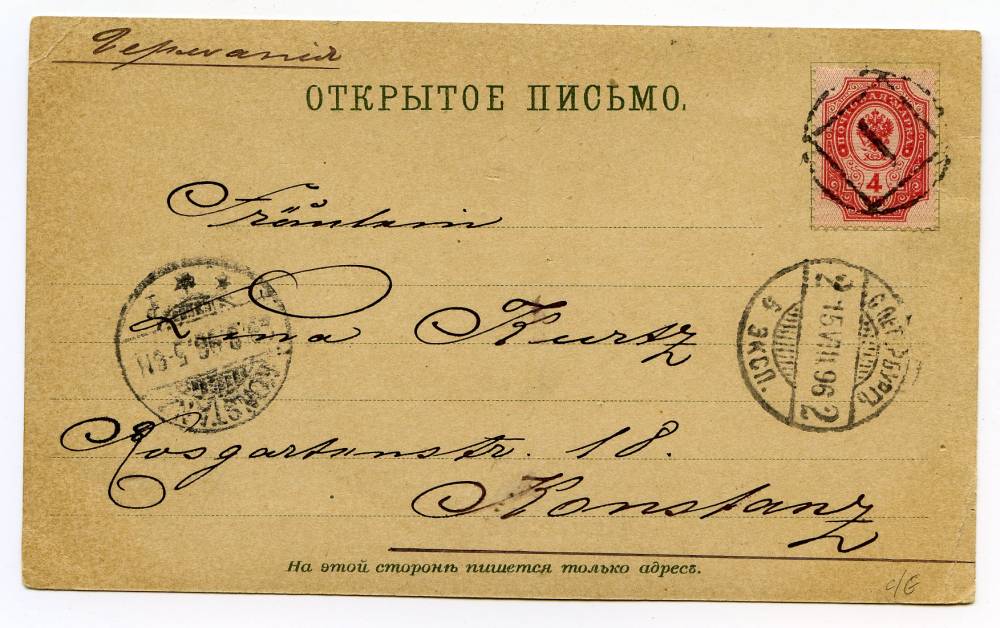 Германія
ОТКРЫТОЕ ПИСЬМО.
ПОЧТОВАЯ МАРКА
4
1
Fräulein
Kurtz
Rosgartenstr. 18.
Konstanz
С.ПЕТЕРБУРГЪ
2 15 VIII 96 2
5 ЭКСП.
KONSTANZ
На этой сторонѣ пишется только адресъ.
c/6